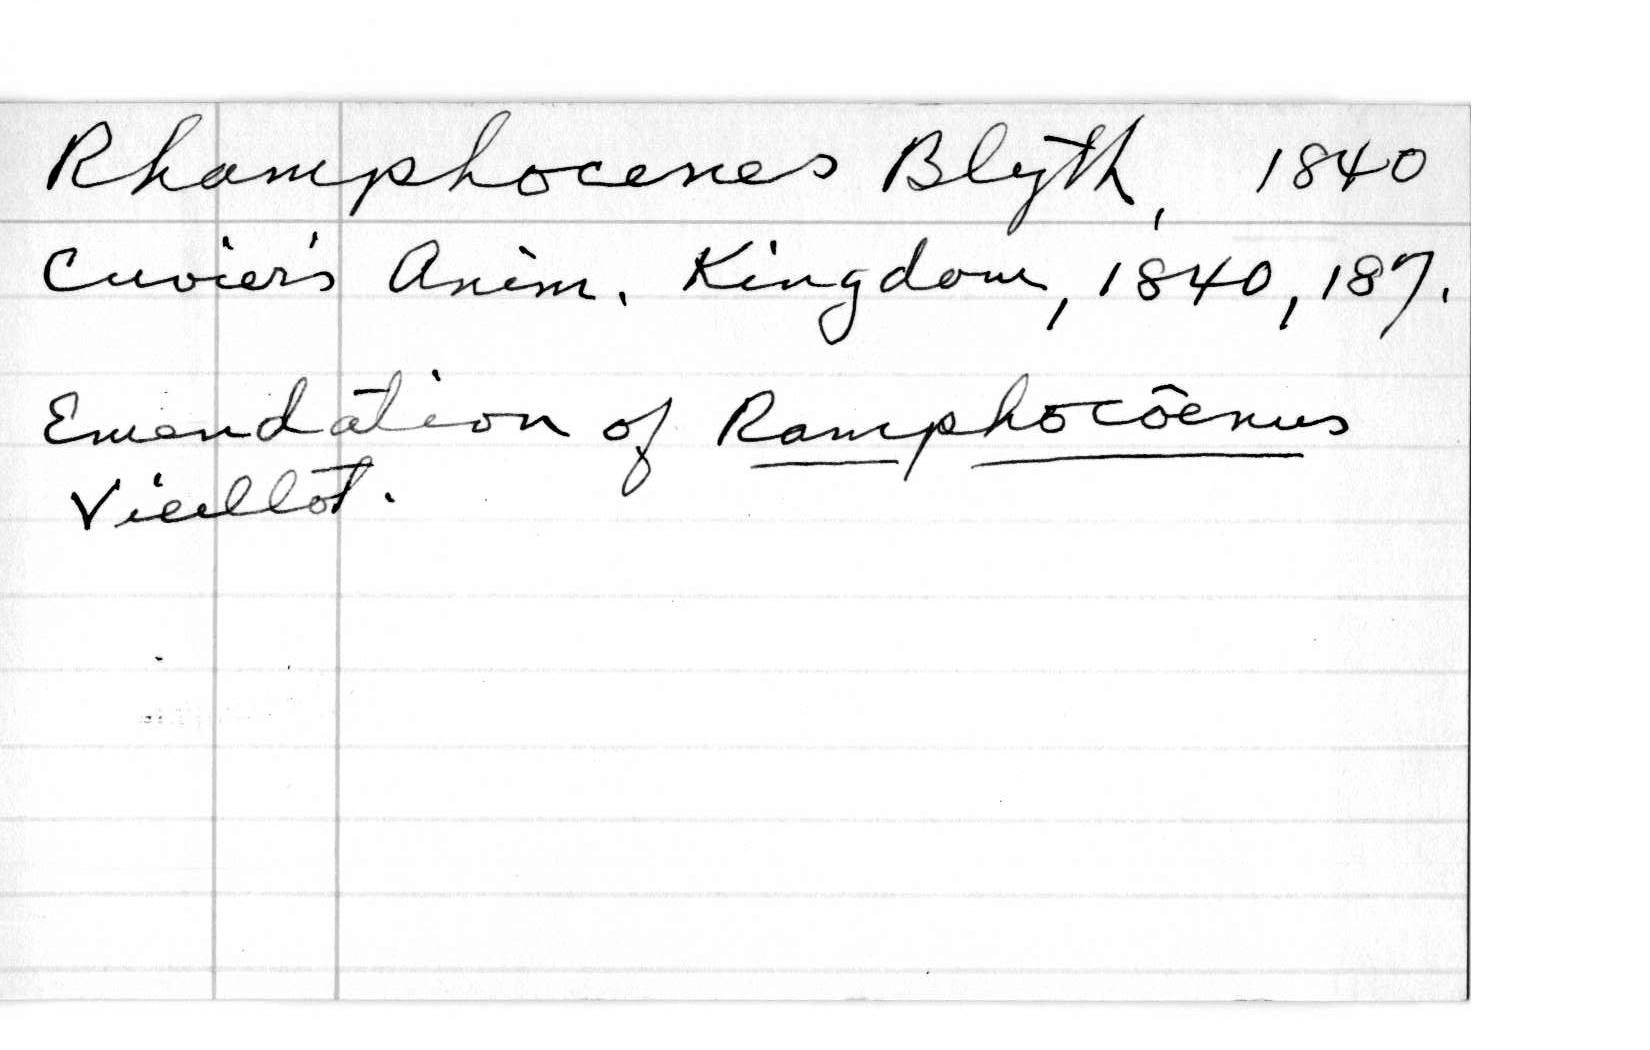 Rhamphocenes Blyth, 1840
Cuvier's Anim. Kingdom, 1840, 187.
Emendation of Ramphocôenus
Vieillot.